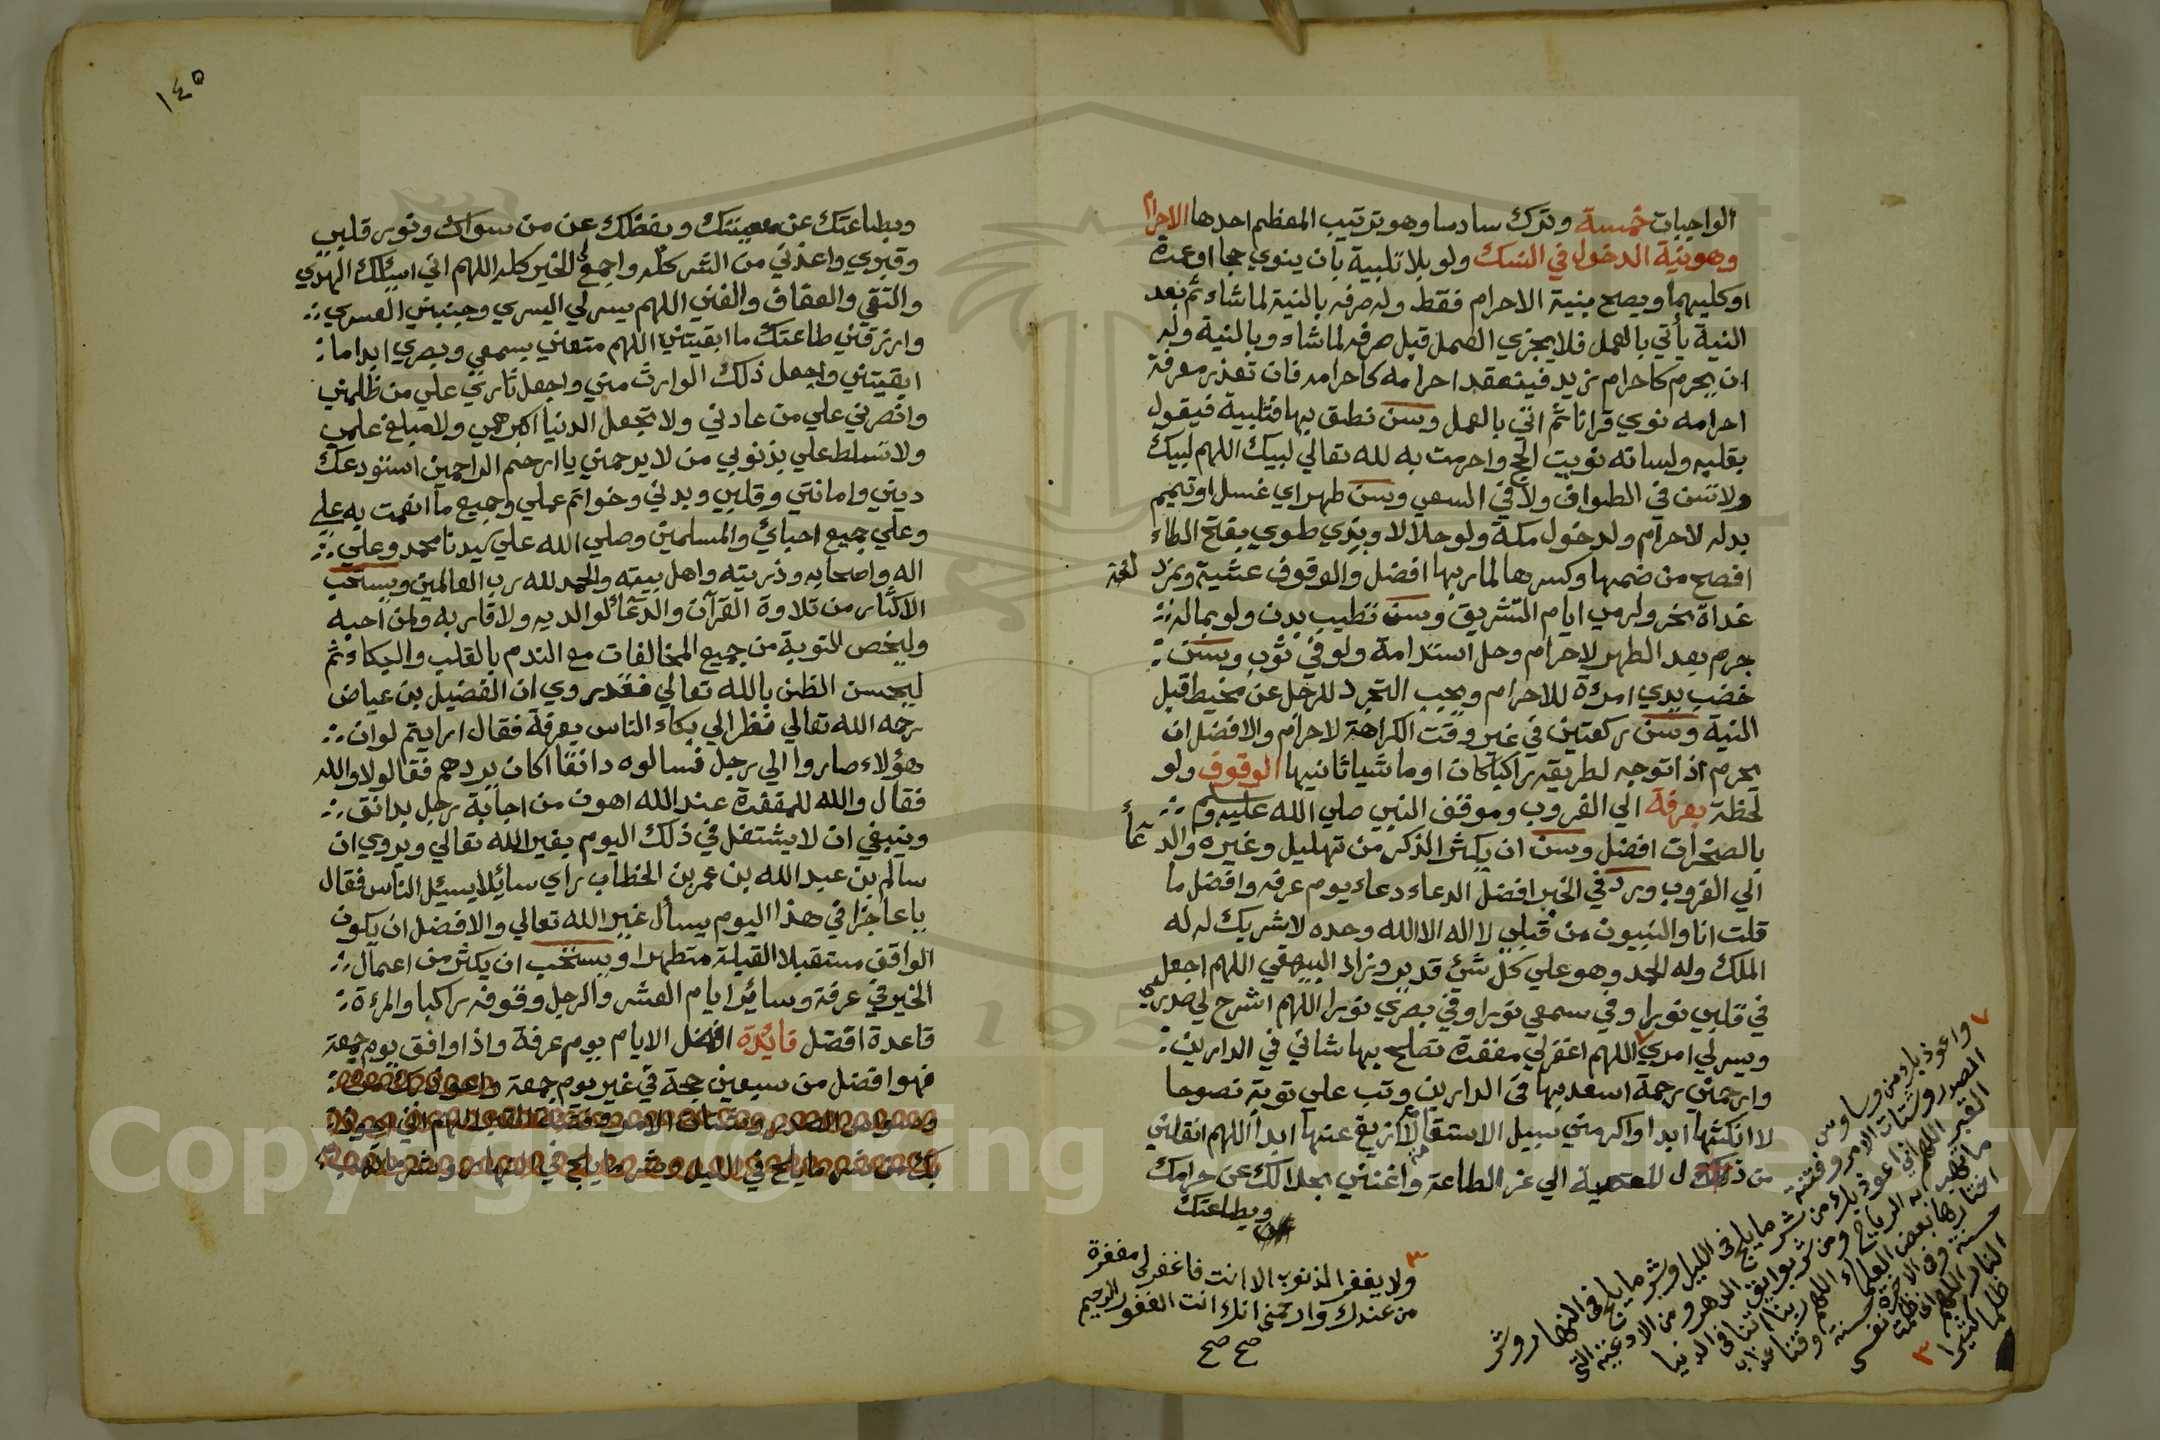 الواجبات خمسة وترك سادسا وهو ترتيب المعظم احدها الاحرام
وهو نية الدخول في النسك ولو بلا تلبية بان ينوي حجا او عمرة
او كليهما ويصح بنية الاحرام فقط وله صرفه بالنية لما شاء ثم بعد
النية يأتي بالعمل فلا يجزي العمل قبل صرفه لما شاء وبالنية وله
ان يحرم كاحرام زيد فينعقد احرامه كاحرامه فان تعذر معرفة
احرامه نوي قرانا ثم اتي بالعمل وسن نطق بها فتلبية فيقول
بقلبه ولسانه نويت الحج واحرمت به لله تعالي لبيك اللهم لبيك
ولا تسن في الطواف ولا في السعي وسن طهر اي غسل او تيمم
بدله لاحرام ولدخول مكة ولو حلالا وبذي طوي بفتح الطاء
افصح من ضمها وكسرها لمار بها افضل والوقوف عشية ومزد لفة
غداة نحر ولرمي ايام التشريق وسن تطييب بدن ولو بماله
جرم بعد الطهر لاحرام وحل استدامة ولو في ثوب وسن
خضب يدي امرءة للاحرام ويجب التجرد للرجل عن مخيط قبل
النية وسن ركعتين في غير وقت الكراهة لاحرام والافضل ان
يحرم اذا توجه لطريقه راكبا كان او ماشيا ثانيها الوقوف ولو
لحظة بعرفة الي الغروب وموقف النبي صلي الله عليه وسلم
بالصخرات افضل وسن ان يكثر الذكر من تهليل وغيره والدعاأ
الي الغروب ورد في الخبر افضل الدعاء دعاء يوم عرفه وافضل ما
قلت انا والنبيون من قبلي لا اله الا الله وحده لا شريك له له
الملك وله الحمد وهو علي كل شئ قدير وزاد البيهقي اللهم اجعل
في قلبي نورا وفي سمعي نورا وفي بصري نورا اللهم اشرح لي صدري
ويسر لي امري ٧ اللهم اغفر لي مغفرة تصلح بها شاني في الدارين
وارحمني رحمة اسعد بها في الدارين وتب على توبة نصوحا
لا انكثها ابدا والزمني سبيل الاستقامة لا ازيغ عنها ابدا اللهم انقلني
من ذل المعصية الي عز الطاعة واغنني بحلالك عن حرامك
وبطاعتك
٧ واعوذ بك من وساوس
الصدر وشتات الامر وفتنة
القبر اللهم اني اعوذ بك من شر ما يلج في الليل وشر ما يلج في النهار وشر
ما تهب به الرياح ومن شر بوايق الدهر ومن الادعية التي
اختارها بعض العلماء اللهم ربنا اتنا في الدنيا
حسنة وفي الاخرة حسنة وقنا عذاب
النار اللهم اني ظلمت نفسي
ظلما كثيرا ٣
٣ ولا يغفر الذنوب الا انت فاغفر لي مغفرة
من عندك وارحمني انك انت الغفور الرحيم
صح صح
١٤٥
وبطاعتك عن معصيتك وبفضلك عن من سواك ونور قلبي
وقبري واعذني من الشر كله واجمع لي الخير كله اللهم اني اسئلك الهدي
والتقي والعفاف والغني اللهم يسر لي اليسري وجنبني العسري
وارزقني طاعتك ما ابقيتني اللهم متعني بسمعي وبصري ابدا ما
ابقيتني واجعل ذلك الوارث مني واجعل ثاري علي من ظلمني
وانصرني علي من عادني ولا تجعل الدنيا اكبر همي ولا مبلغ علمي
ولا تسلط علي بذنوبي من لا يرحمني يا ارحم الراحمين استودعك
ديني وامانتي وقلبي وبدني وخواتم عملي وجميع ما انعمت به علي
وعلي جميع احبائي والمسلمين وصلي الله علي سيدنا محمد وعلي
اله واصحابه وذريته واهل بيته والحمد لله رب العالمين ويستحب
الاكثار من تلاوة القرآن والدعاء لوالديه ولاقاربه ولمن احبه
وليخص للتوبة من جميع المخالفات مع الندم بالقلب والبكاء ثم
ليحسن الظن بالله تعالي فقد روي ان الفضيل بن عياض
رحمه الله تعالي نظر الي بكاء الناس بعرفة فقال ارايتم لو ان
هؤلاء صاروا الي رجل فسالوه دانقا اكان يردهم فقالو لا والله
فقال والله للمغفرة عند الله اهون من اجابة رجل بدانق
وينبغي ان لا يشتغل في ذلك اليوم بغير الله تعالي ويروي ان
سالم بن عبد الله بن عمر بن الخطاب راي سائلا يسئل الناس فقال
يا عاجزا في هذا اليوم يسأل غير الله تعالي والافضل ان يكون
الواقف مستقبلا القبلة متطهرا ويستحب ان يكثر من اعمال
الخير في عرفة وسائر ايام العشر والرجل وقوفه راكبا والمرءة
قاعدة افضل فائدة افضل الايام يوم عرفة واذا وافق يوم جمعة
فهو افضل من سبعين حجة في غير يوم جمعة واعوذ بك من
وسواس الصدر وشتات الامر وفتنة القبر اللهم اني اعوذ
بك من شر ما يلج في الليل وشر ما يلج في النهار وشر ما تهب